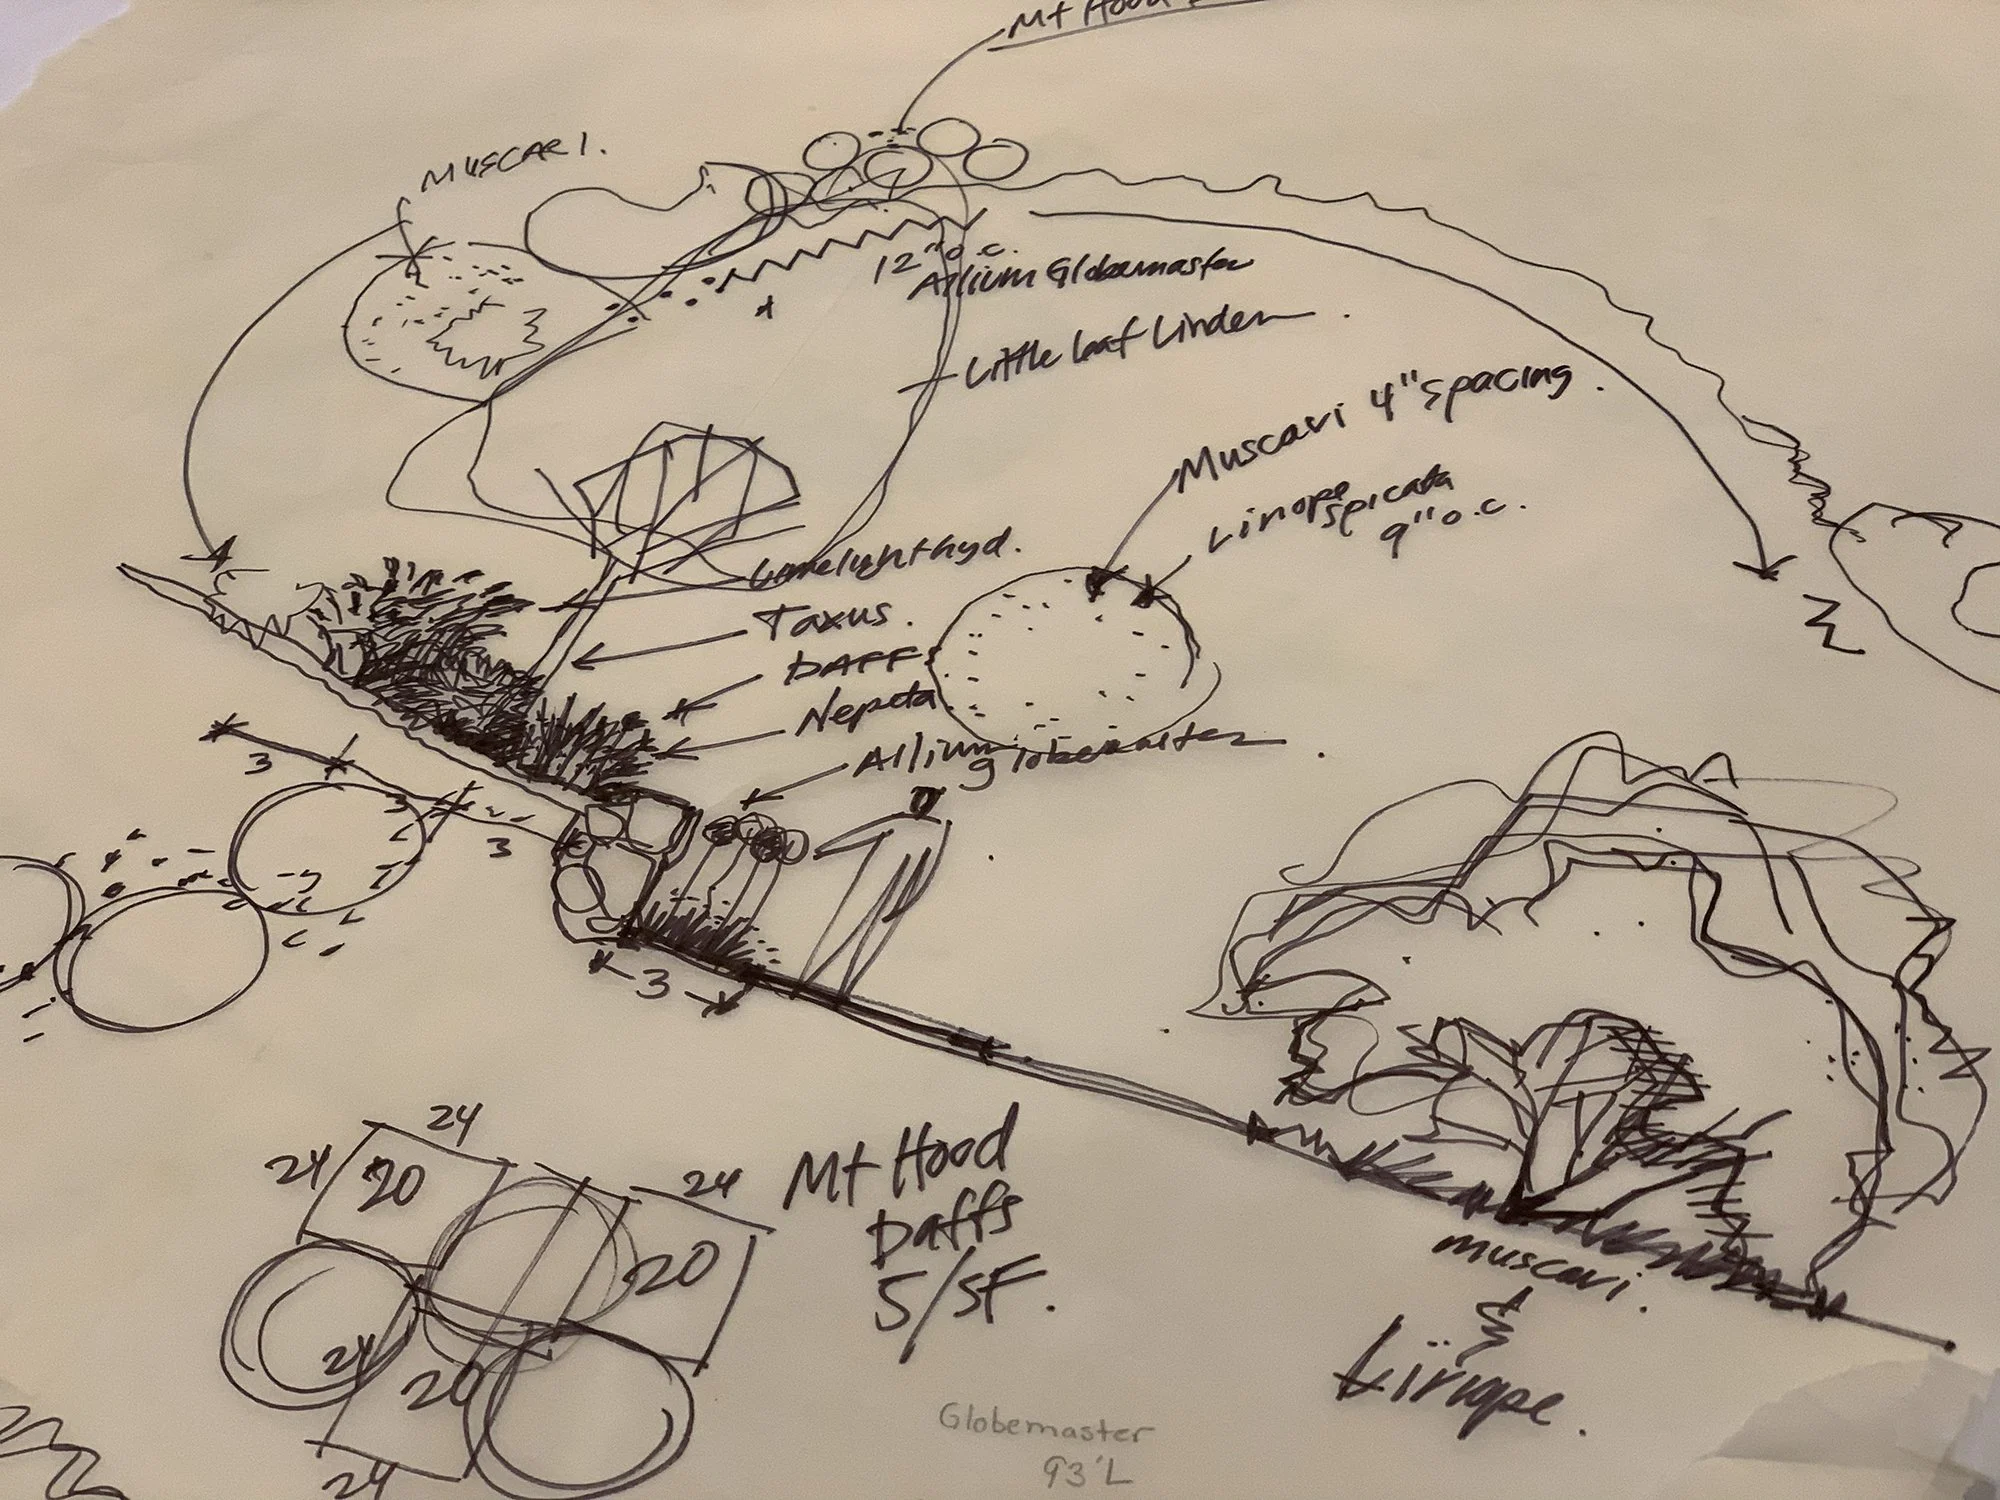 Mt Hood
MUSCARI.
12" o.c.
Allium Globemaster
Little leaf Linden.
Muscari 4" spacing.
Liriope
spicata
9" o.c.
Limelight hyd.
Taxus.
DAFFS
Nepeta
Allium
globemaster.
3
3
3
3
24
24
20
24
20
24
20
24
Mt Hood
Daffs
5/SF.
muscari.
&
Liriope.
Globemaster
93'L